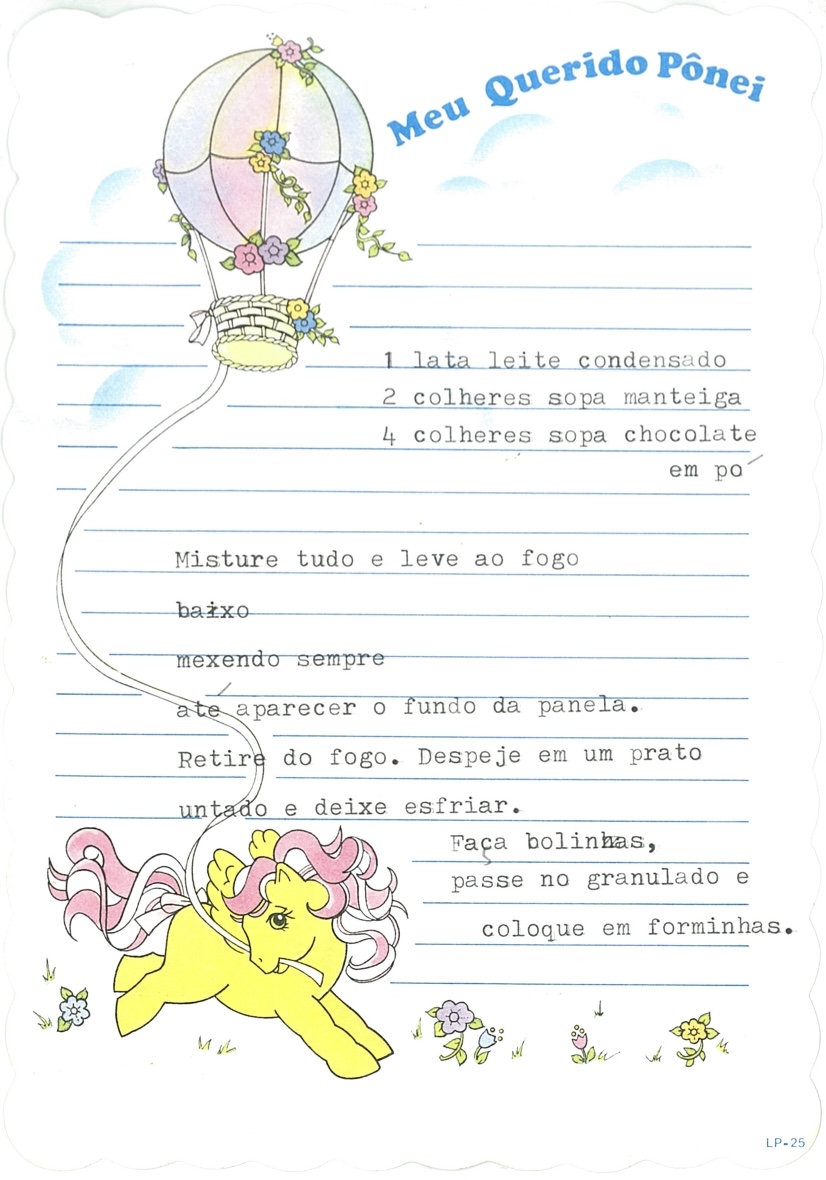 Meu Querido Pônei
1 lata leite condensado
2 colheres sopa manteiga
4 colheres sopa chocolate
em pó
Misture tudo e leve ao fogo
baixo
mexendo sempre
até aparecer o fundo da panela.
Retire do fogo. Despeje em um prato
untado e deixe esfriar.
Faça bolinhas,
passe no granulado e
coloque em forminhas.
LP-25